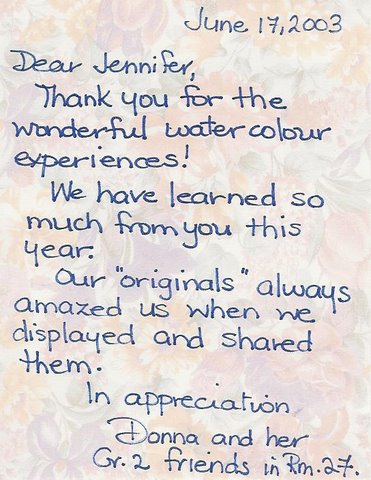 June 17, 2003
Dear Jennifer,
Thank you for the
wonderful water colour
experiences!
We have learned so
much from you this
year.
Our "originals" always
amazed us when we
displayed and shared
them.
In appreciation
Donna and her
Gr. 2 friends in Rm. 27.